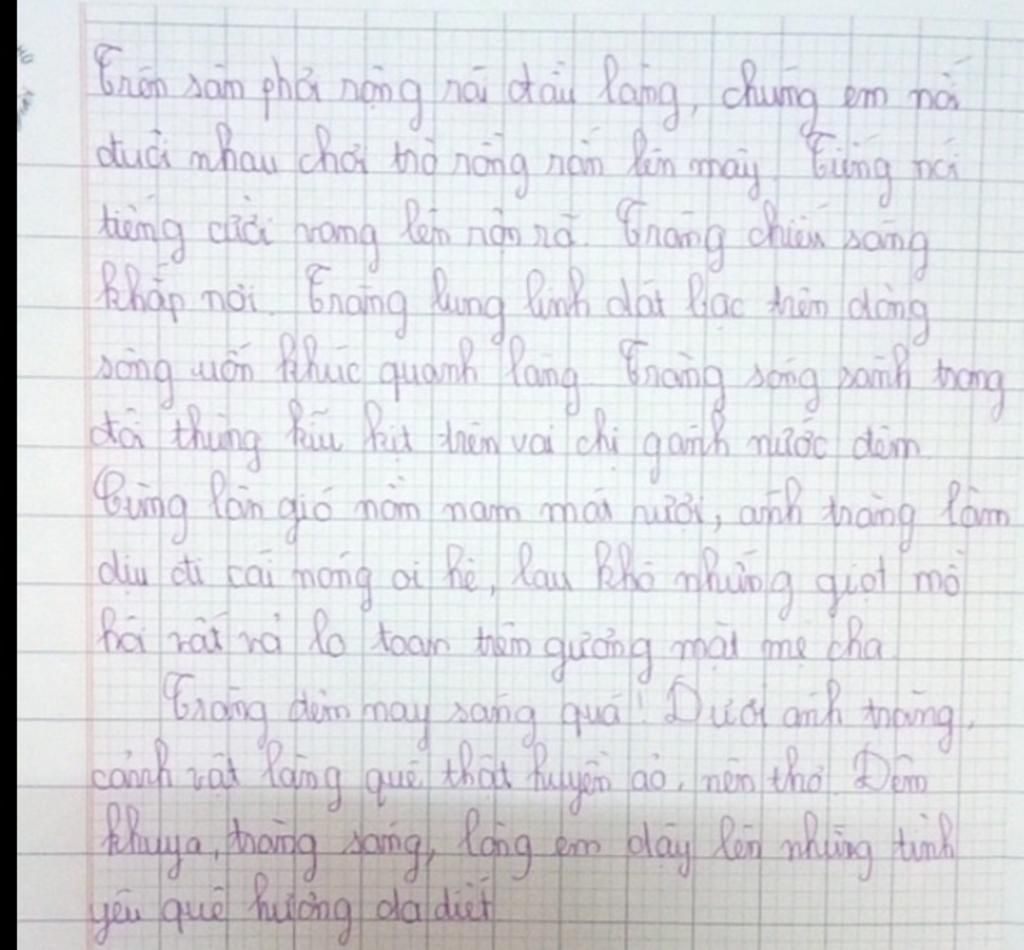 Trên sân phơi rộng rãi đầu làng, chúng em nối
đuôi nhau chơi trò rồng rắn lên mây. Tiếng nói
tiếng cười vang lên rộn rã. Trăng chiếu sáng
khắp nơi. Trăng lung linh dát bạc trên dòng
sông uốn khúc quanh làng. Trăng sóng sánh trong
đôi thùng kĩu kịt trên vai chị gánh nước đêm.
Cùng làn gió nồm nam mát rượi, ánh trăng làm
dịu đi cái nóng oi hè, lau khô những giọt mồ
hôi vất vả lo toan trên gương mặt mẹ cha.
Trăng đêm nay sáng quá! Dưới ánh trăng,
cảnh vật làng quê thật huyền ảo, nên thơ. Đêm
khuya, trăng sáng, lòng em dấy lên những tình
yêu quê hương da diết